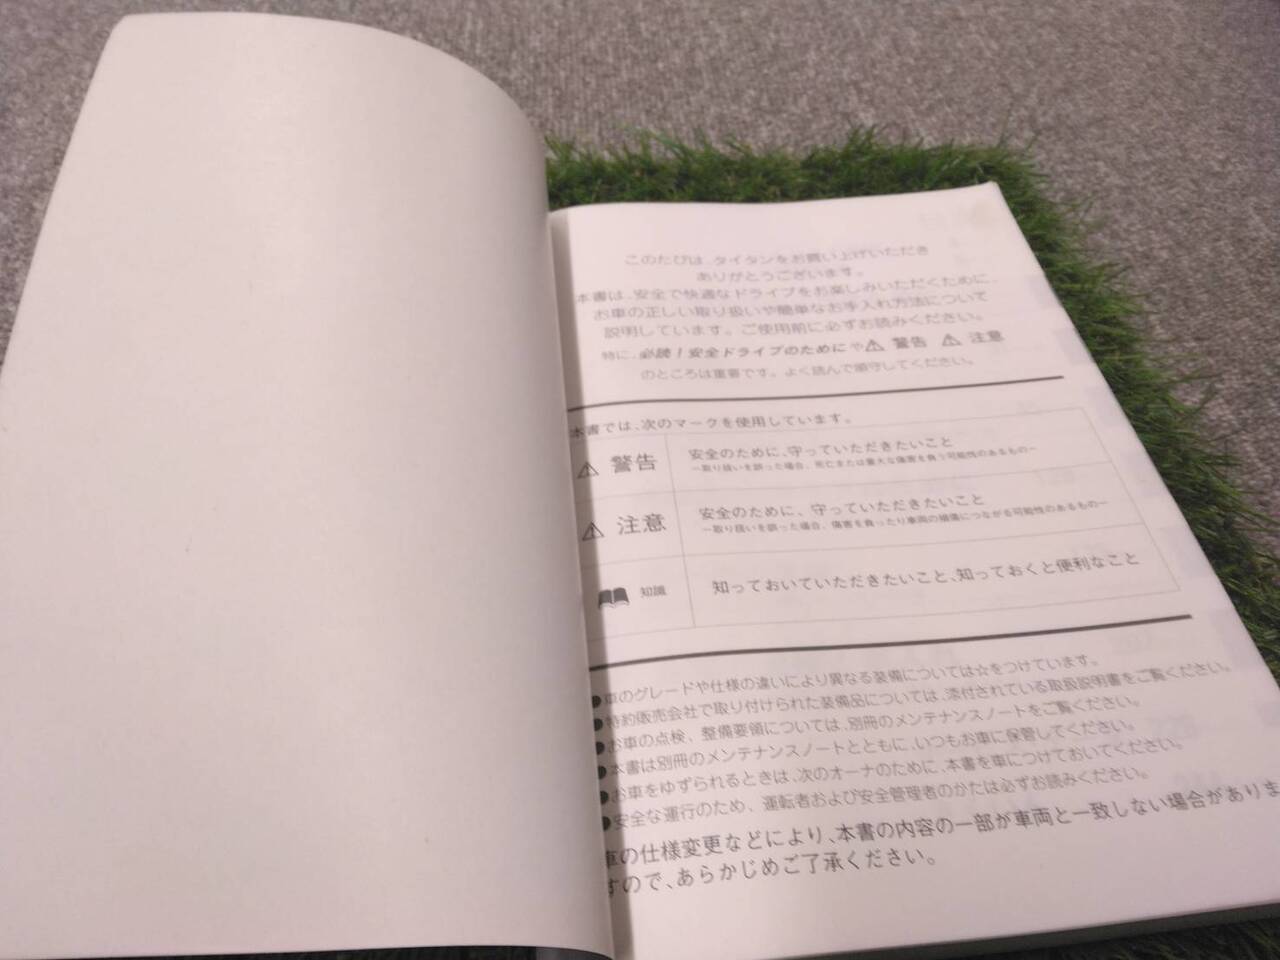 このたびは、タイタンをお買い上げいただき
ありがとうございます。
本書は、安全で快適なドライブをお楽しみいただくために、
お車の正しい取り扱いや簡単なお手入れ方法について
説明しています。ご使用前に必ずお読みください。
特に、必読！安全ドライブのためにや⚠ 警告 ⚠ 注意
のところは重要です。よく読んで順守してください。
本書では、次のマークを使用しています。
⚠ 警告
安全のために、守っていただきたいこと
ー取り扱いを誤った場合、死亡または重大な傷害を負う可能性のあるものー
⚠ 注意
安全のために、守っていただきたいこと
ー取り扱いを誤った場合、傷害を負ったり車両の損傷につながる可能性のあるものー
知識
知っておいていただきたいこと、知っておくと便利なこと
●車のグレードや仕様の違いにより異なる装備については☆をつけています。
●特約販売会社で取り付けられた装備品については、添付されている取扱説明書をご覧ください。
●お車の点検、整備要領については、別冊のメンテナンスノートをご覧ください。
●本書は別冊のメンテナンスノートとともに、いつもお車に保管してください。
●お車をゆずられるときは、次のオーナのために、本書を車につけておいてください。
●安全な運行のため、運転者および安全管理者のかたは必ずお読みください。
車の仕様変更などにより、本書の内容の一部が車両と一致しない場合がありま
すので、あらかじめご了承ください。